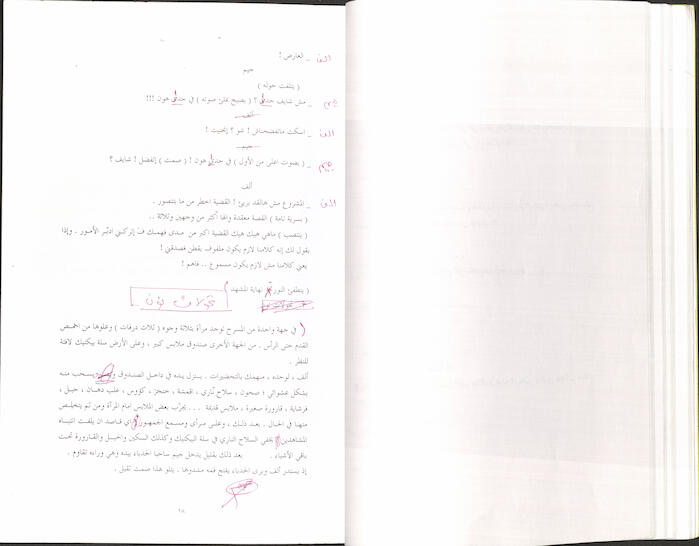 الف _ العارض !
جيم
( يتلفت حوله )
جيم _ مش شايف حدا ؟ ( يصيح بملئ صوته ) في حدا هون !!!
ألف
الف _ اسكت ماتفضحناش ! شو ؟ إنجنيت !
جيم
جيم _ ( بصوت اعلى من الأول ) في حدا هون ! ( صمت ) إتفضل ! شايف ؟
ألف
الف _ المشروع مش هالقد بريئ ! القضية اخطر من ما بتتصور .
( بسرية تامة ) القصة معقدة والها أكثر من وجهين وثلاثة ..
( ينتصب ) ماهي هيك هيك القضية اكبر من مدى فهمك ف إتركني ادبّر الأمور . وإذا
بقول لك إنه كلامنا لازم يكون ملفوف بقطن فصدقني !
يعني كلامنا مش لازم يكون مسموع ... فاهم !
( ينطفئ النور نهاية المشهد )
تحولات نون
( في جهة واحدة من المسرح توجد مرآة بثلاثة وجوه ( ثلاث درفات ) وعلوها من اخمص
القدم حتى الرأس . من الجهة الأخرى صندوق ملابس كبير ، وعلى الأرض سلة بيكنيك لافتة
للنظر .
ألف ، لوحده ، منهمك بالتحضيرات . ينزل يده في داخل الصندوق ويسحب منه
بشكل عشوائي : صحون ، سلاح ناري ، اقمشة ، خنجر ، كؤوس ، علب دهان ، حبل ،
فرشاية ، قارورة صغيرة ، ملابس قديمة .... يجرّب بعض الملابس امام المرآة ومن ثم يتخلص
منها في الحال . بعد ذلك ، وعلى مرأى ومسمع الجمهور اي قاصد ان يلفت انتباه
المشاهدين يخفي السلاح الناري في سلة البيكنيك وكذلك السكين والحبل والقارورة تحت
باقي الأشياء . بعد ذلك بقليل يدخل جيم ساحبا الحدباء بيده وهي وراءه تقاوم .
إذ يستدير ألف ويرى الحدباء يفتح فمه مشدوها . يتلو هذا صمت ثقيل .
٢٨